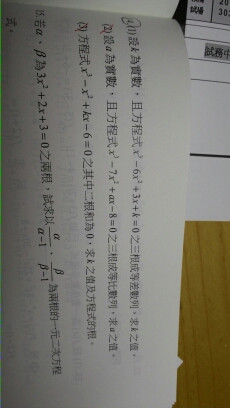 4. (1) 設k為實數，且方程式x³－6x²＋3x＋k＝0之三根成等差數列，求k之值。
(2) 設a為實數，且方程式x³－7x²＋ax－8＝0之三根成等比數列，求a之值。
(3) 方程式x³－x²＋kx－6＝0之其中二根和為0，求k之值及方程式的根。
5. 若α、β為3x²＋2x＋3＝0之兩根，試求以 α/(α－1)、β/(β－1) 為兩根的一元二次方程
式。
試務中